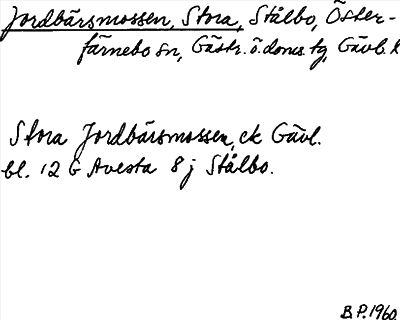 Jordbärsmossen, Stora, Stålbo, Öster-
färnebo sn, Gästr. ö. doms. tg, Gävl. l
Stora Jordbärsmossen, ek Gävl.
bl. 12 G Avesta 8 j Stålbo.
B.P. 1960